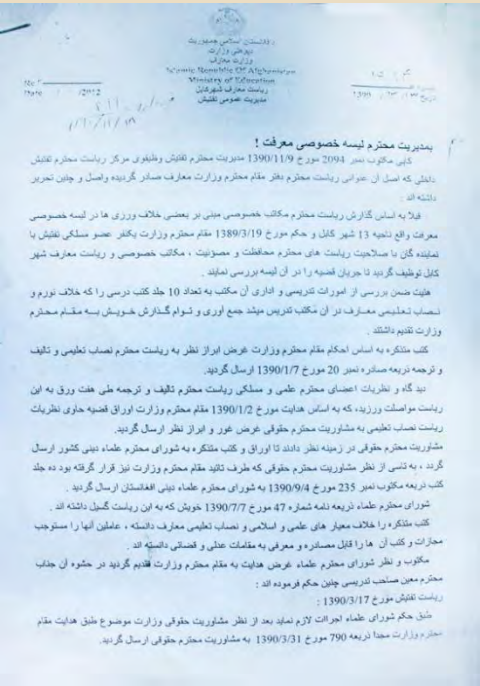 د افغانستان اسلامی جمهوریت
وزارت معارف
Islamic Republic Of Afghanistan
Ministry of Education
ریاست معارف شهر کابل
مدیریت عمومی تفتیش
بمدیریت محترم لیسه خصوصی معرفت !
کاپی مکتوب نمبر 2094 مورخ 1390/11/9 مدیریت محترم تفتیش وظیفوی مرکز ریاست محترم تفتیش
داخلی که اصل آن عنوانی ریاست محترم دفتر مقام محترم وزارت معارف صادر گردیده واصل و چنین تحریر
داشته اند :
قبلا به اساس گذارش ریاست محترم مکاتب خصوصی مبنی بر بعضی خلاف ورزی ها در لیسه خصوصی
معرفت واقع ناحیه 13 شهر کابل و حکم مورخ 1389/3/19 مقام محترم وزارت یکنفر عضو مسلکی تفتیش با
نماینده گان با صلاحیت ریاست های محترم محافظت و مصؤنیت ، مکاتب خصوصی و ریاست معارف شهر
کابل توظیف گردید تا جریان قضیه را در آن لیسه بررسی نمایند .
هئیت ضمن بررسی از امورات تدریسی و اداری آن مکتب به تعداد 10 جلد کتب درسی را که خلاف نورم و
نصاب تعلیمی معارف در آن مکتب تدریس میشد جمع آوری و توام گذارش خویش به مقام محترم
وزارت تقدیم داشتند .
کتب متذکره به اساس احکام مقام محترم وزارت غرض ابراز نظر به ریاست محترم نصاب تعلیمی و تالیف
و ترجمه ذریعه صادره نمبر 20 مورخ 1390/1/7 ارسال گردید.
دید گاه و نظریات اعضای محترم علمی و مسلکی ریاست محترم تالیف و ترجمه طی هفت ورق به این
ریاست مواصلت ورزید، که به اساس هدایت مورخ 1390/1/2 مقام محترم وزارت اوراق قضیه حاوی نظریات
ریاست نصاب تعلیمی به مشاوریت محترم حقوقی غرض غور و ابراز نظر ارسال گردید.
مشاوریت محترم حقوقی در زمینه نظر دادند تا اوراق و کتب متذکره به شورای محترم علماء دینی کشور ارسال
گردد ، به تاسی از نظر مشاوریت محترم حقوقی که طرف تائید مقام محترم وزارت نیز قرار گرفته بود ده جلد
کتب ذریعه مکتوب نمبر 235 مورخ 1390/9/4 به شورای محترم علماء دینی افغانستان ارسال گردید .
شورای محترم علماء ذریعه نامه شماره 47 مورخ 1390/7/7 خویش که به این ریاست گسیل داشته اند .
کتب متذکره را خلاف معیار های علمی و اسلامی و نصاب تعلیمی معارف دانسته ، عاملین آنها را مستوجب
مجازات و کتب آن ها را قابل مصادره و معرفی به مقامات عدلی و قضائی دانسته اند .
مکتوب و نظر شورای محترم علماء غرض هدایت به مقام محترم وزارت تقدیم گردید در حشوه آن جناب
محترم معین صاحب تدریسی چنین حکم فرموده اند :
ریاست تفتیش مورخ 1390/3/17 :
طبق حکم شورای علماء اجراات لازم نماید بعد از نظر مشاوریت حقوقی وزارت موضوع طبق هدایت مقام
محترم وزارت مجدا ذریعه 790 مورخ 1390/3/31 به مشاوریت محترم حقوقی ارسال گردید.